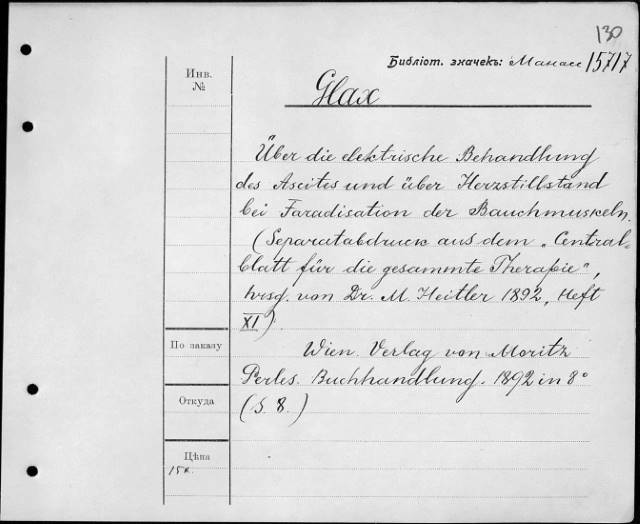 130
Библіот. значекъ: Манасс 15717
Инв.
№
Glax
Über die elektrische Behandlung
des Ascites und über Herzstillstand
bei Faradisation der Bauchmuskeln.
(Separatabdruck aus dem „Central-
blatt für die gesammte Therapie",
hrsg. von Dr. M. Heitler 1892, Heft
XI).
По заказу
Wien. Verlag von Moritz
Perles. Buchhandlung. 1892 in 8°
Откуда
(S. 8.)
Цѣна
15к.